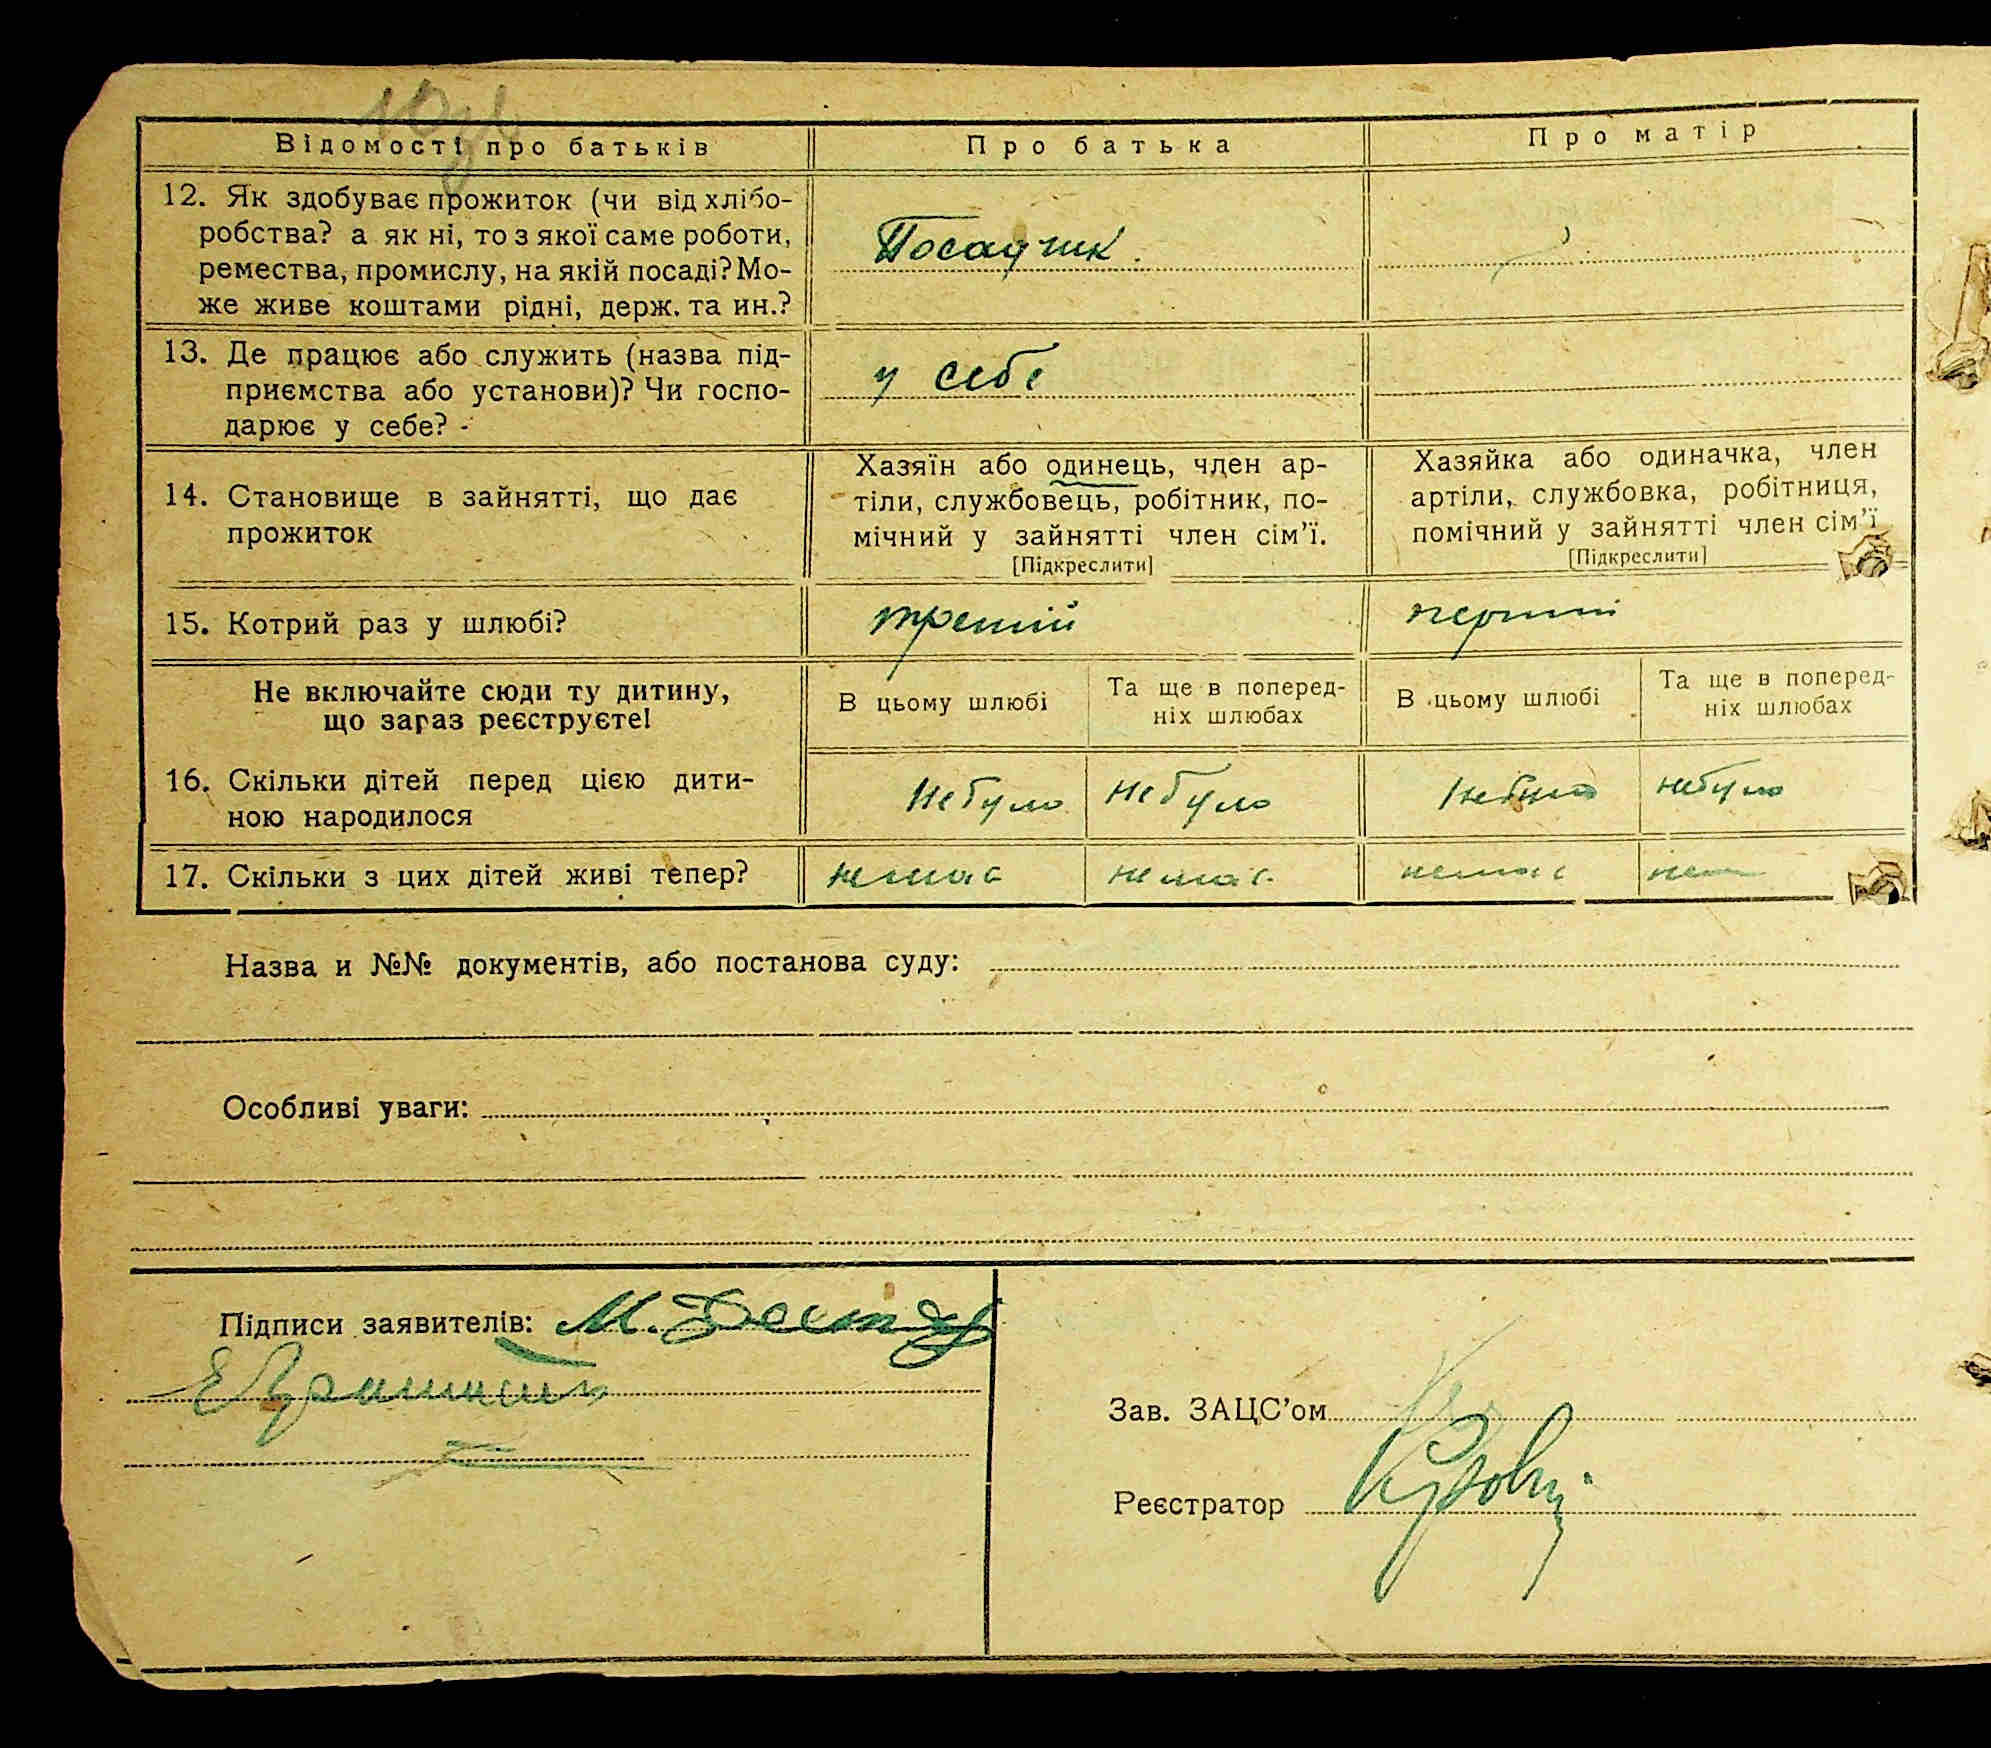 Відомості про батьків
Про батька
Про матір
12. Як здобуває прожиток (чи від хлібо-
робства? а як ні, то з якої саме роботи,
ремества, промислу, на якій посаді? Мо-
же живе коштами рідні, держ. та ин.?
13. Де працює або служить (назва під-
приємства або установи)? Чи госпо-
дарює у себе?
у себе
14. Становище в зайнятті, що дає
прожиток
Хазяїн або одинець, член ар-
тіли, службовець, робітник, по-
мічний у зайнятті член сім'ї.
[Підкреслити]
Хазяйка або одиначка, член
артіли, службовка, робітниця,
помічний у зайнятті член сім'ї
[Підкреслити]
15. Котрий раз у шлюбі?
третій
перший
Не включайте сюди ту дитину,
що зараз реєструєте!
В цьому шлюбі
Та ще в поперед-
ніх шлюбах
В цьому шлюбі
Та ще в поперед-
ніх шлюбах
16. Скільки дітей перед цією дити-
ною народилося
Небуло
Небуло
Небуло
небуло
17. Скільки з цих дітей живі тепер?
немає
немає
немає
Назва и №№ документів, або постанова суду:
Особливі уваги:
Підписи заявителів:
Зав. ЗАЦС'ом
Реєстратор